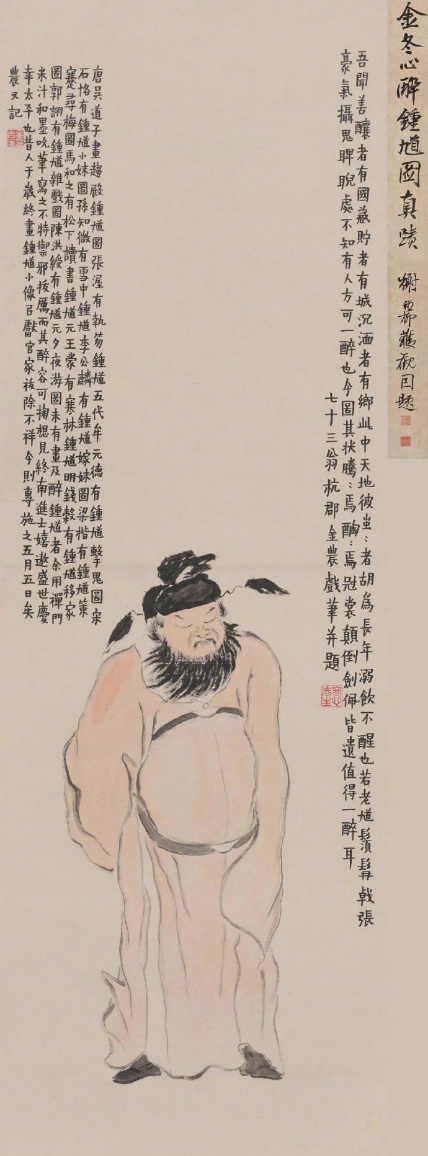 金冬心醉鍾馗圖真蹟
觀因題
吾聞善釀者有國藏貯者有城沉湎者有鄉此中天地彼蚩:者胡為長年溺飲不醒也若老馗鬚髯戟張
豪氣攝鬼睥睨處不知有人方可一醉也今圖其狀騰:焉醄:焉冠裳顛倒劍佩皆遺值得一醉耳
七十三翁杭郡金農戲筆并題
唐吳道子畫趨殿鍾馗圖張渥有執笏鍾馗五代牟元德有鍾馗擊鬼圖宋
石恪有鍾馗小妹圖孫知微有雪中鍾馗李公麟有鍾馗嫁妹圖梁楷有鍾馗策
蹇尋梅圖馬和之有松下讀書鍾馗元王蒙有寒林鍾馗明錢穀有鍾馗移家
圖郭詡有鍾馗雜戲圖陳洪綬有鍾馗元夕夜游圖未有畫及醉鍾馗者余用禪門
米汁和墨吮筆寫之不特禦邪拔厲而其醉容可掬想見終南進士嬉遨盛世慶
幸太平也昔人于歲終畫鍾馗小像以獻官家祓除不祥今則專施之五月五日矣
農又記